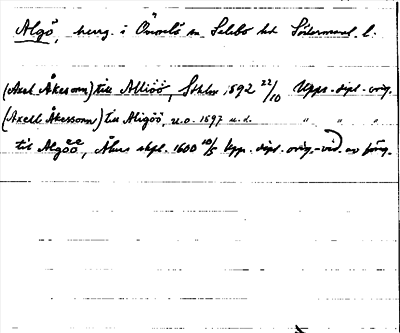 Algö, herrg. i Överselö sn Selebo hd Södermanl. l.
(Axel Åkesson) till Alliöö, Sthlm 1592 22/10 Upps. dipl. orig.
(Axell Åkessonn) till Aligöö, u.o. 1597 u.d. " " "
till Algöö, Åkers skpl. 1600 10/5 Upp. dipl. orig.-vid. av förg.